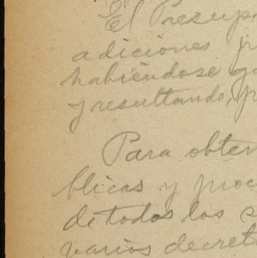 El Presup
adiciones
habiéndose
y resultando, p
Para obten
blicas y proc
de todos los s
varios decret